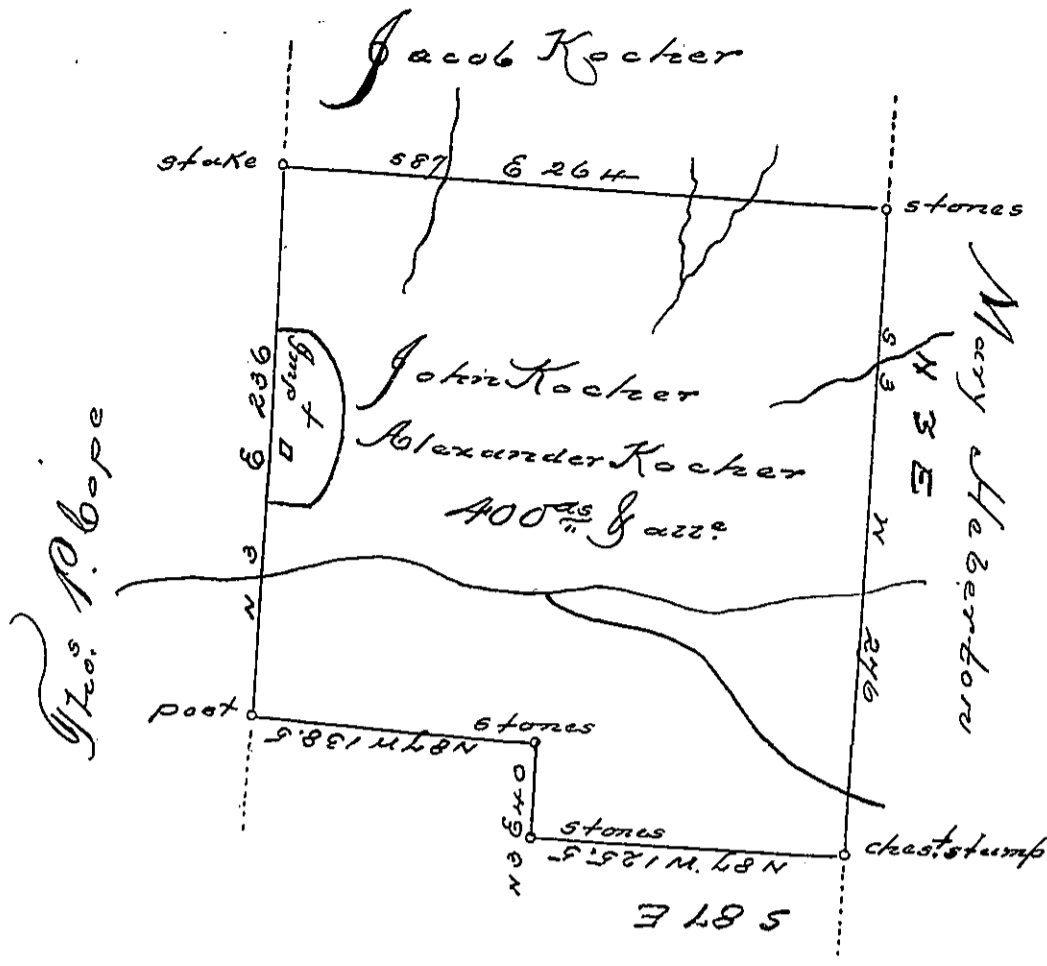 Jacob Kocher
stake
S87 E 264
stones
Mary Heberton
S 3 W 276
N 3 E
Imp
John Kocher
Alexander Kocher
400 as & all.e
Tho.s P. Cope
N 3 E 236
post
N87 W 138.5
stones
N 3 E 40
stones
N87.W 125.5
ches.t stump
S 87 E